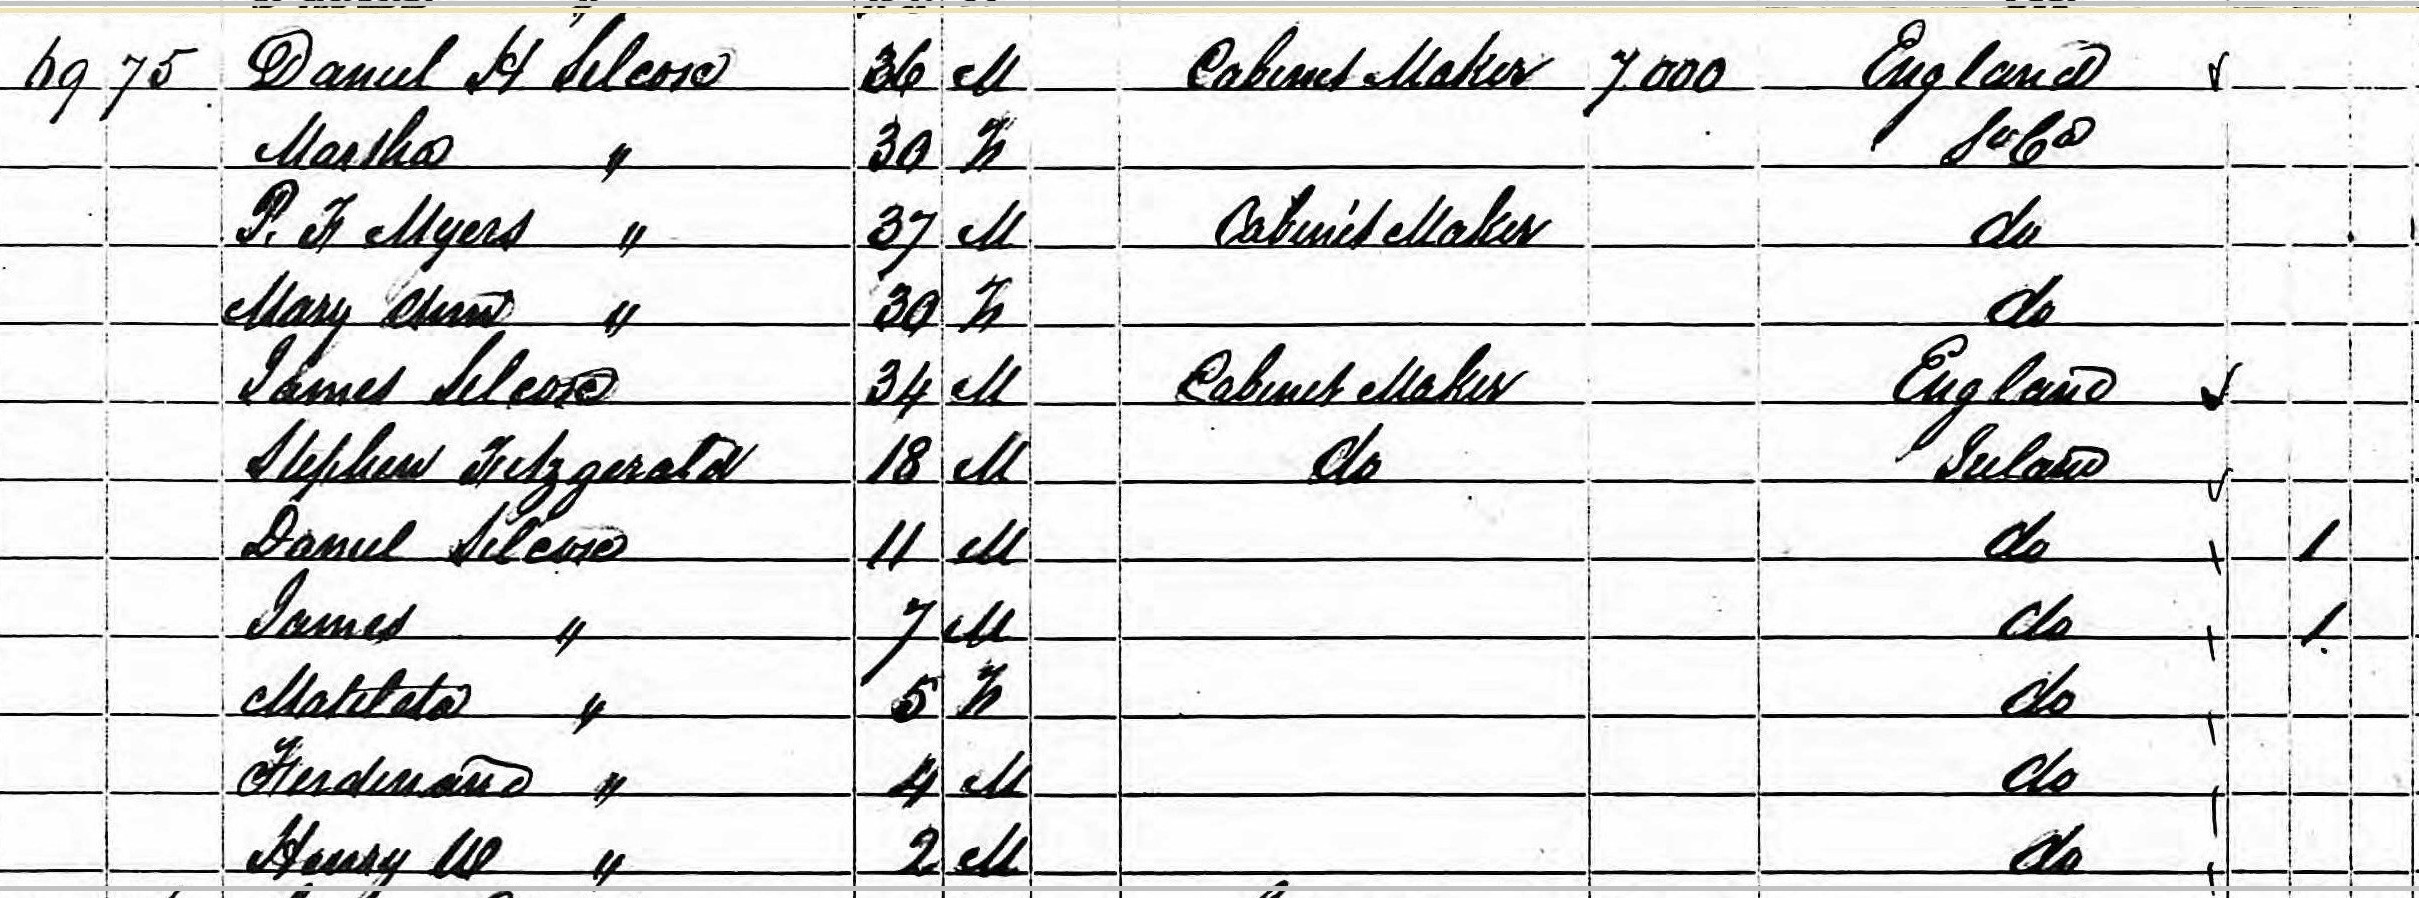 69 75 Daniel H Silcox 36 M Cabinet Maker 7.000 England
Martha " 30 F So Ca
P. F Myers " 37 M Cabinet Maker do
Mary Ann " 30 F do
James Silcox 34 M Cabinet Maker England
Stephen Fitzgerald 18 M do Ireland
Daniel Silcox 11 M do 1
James " 7 M do 1
Matilda " 5 F do
Ferdinand " 4 M do
Henry W " 2 M do